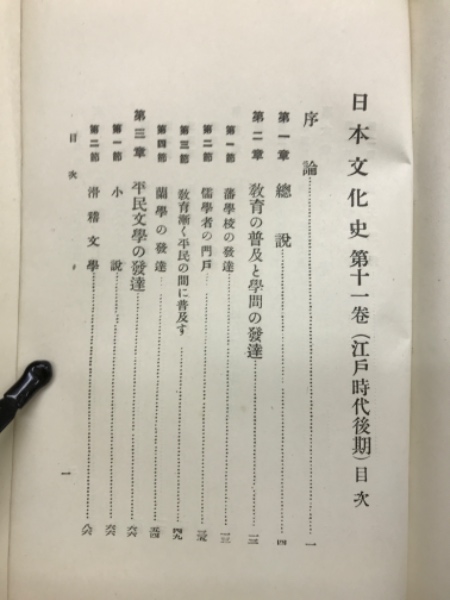 日本文化史 第十一卷 (江戸時代後期) 目次
序論……一
第一章 總説……四
第二章 教育の普及と學問の發達……一三
第一節 藩學校の發達……一三
第二節 儒學者の門戸……三五
第三節 教育漸く平民の間に普及す……四九
第四節 蘭學の發達……五四
第三章 平民文學の發達……六六
第一節 小説……六六
第二節 滑稽文學……八六
目次
一